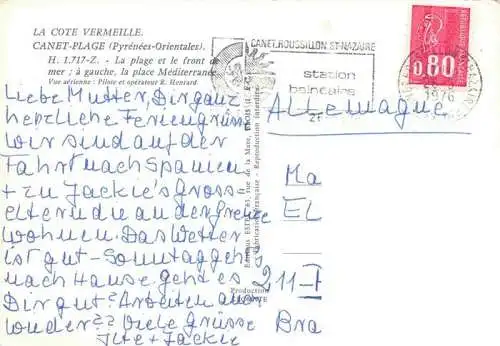 LA COTE VERMEILLE.
CANET-PLAGE (Pyrénées-Orientales).
H. 1.717-Z. - La plage et le front de
mer ; à gauche, la place Méditerranée
Vue aérienne : Pilote et opérateur R. Henrard
CANET.ROUSSILLON ST-NAZAIRE
station
balnéaire
0,80
1976
Allemagne
Liebe Mutter, Dir ganz
herzliche Feriengrüsse
wir sind auf der
Fahrt nach Spanien
+ zu Jackie's Gross-
eltern die an der Grenze
wohnen. Das Wetter
ist gut - Sonntag geht's
nach Hause geht es
Dir gut? Arbeiten
Viele Grüsse
+ Jackie
rue de la Mare,
Fabrication Française - Reproduction interdite
Production
Ma
EL
211-I
Bra